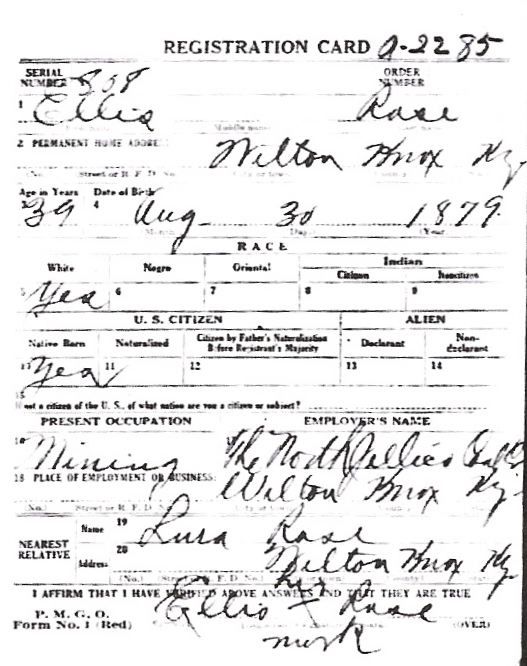 REGISTRATION CARD A-2285
SERIAL NUMBER 858 ORDER NUMBER
1 Ellis Rose
Middle name
2 PERMANENT HOME ADDRESS: Wilton Knox Ky
(No.) Street or R. F. D. No.
Age in Years Date of Birth
3 39 4 Aug 30 1879
Month Day Year
RACE
White Negro Oriental Indian
Citizen Noncitizen
5 Yes 6 7 8 9
U. S. CITIZEN ALIEN
Native Born Naturalized Citizen by Father's Naturalization Before Registrant's Majority Declarant Non-declarant
10 Yes 11 12 13 14
15
not a citizen of the U. S., of what nation are you a citizen or subject?
PRESENT OCCUPATION EMPLOYER'S NAME
16 Mining The North Jellico Coal Co
18 PLACE OF EMPLOYMENT OR BUSINESS: Wilton Knox Ky
(No.) Street or R. F. D. No.
NEAREST RELATIVE
Name 19 Lura Rose
Address 20 Wilton Knox Ky
(No.) Street or R. F. D. No.
I AFFIRM THAT I HAVE VERIFIED ABOVE ANSWERS AND THAT THEY ARE TRUE
P. M. G. O.
Form No. 1 (Red)
his
Ellis x Rose
mark
(OVER)